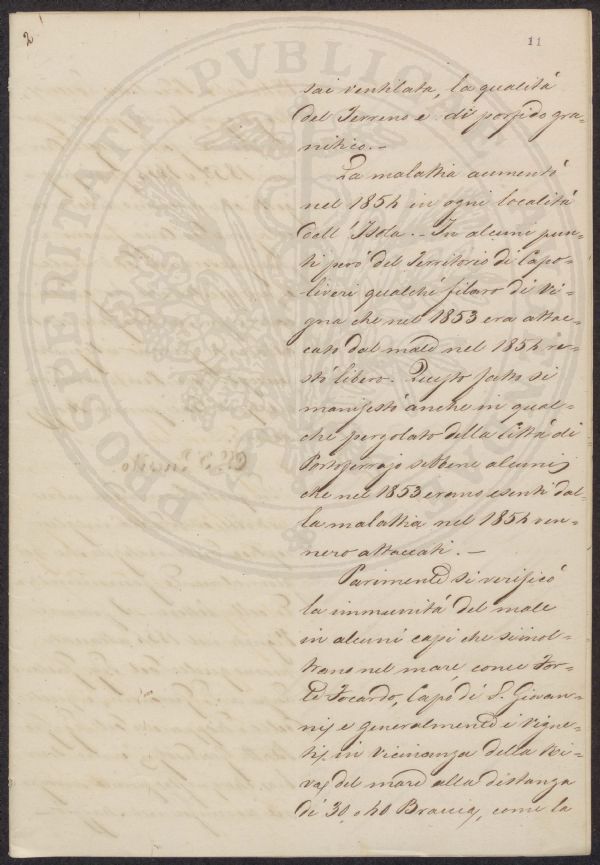 2
11
PROSPERITATI PUBLICAE
sai ventilata, la qualità
del Terreno è di porfido gra-
nitico. -
La malattia aumentò
nel 1854 in ogni località
dell'Isola. - In alcuni pun-
ti però del Territorio di Capo-
liveri qualche filaro di Vi-
gna che nel 1853 era attac-
cato dal male nel 1854 re-
stò libero. Questo fatto si
manifestò anche in qual-
che pergolato della Città di
Portoferrajo sebbene alcuni
che nel 1853 erano esenti dal-
la malattia nel 1854 ven-
nero attaccati. -
Parimente si verificò
la immunità del male
in alcuni capi che s'inol-
trano nel mare come For-
te Focardo, Capo di S. Giovan-
ni, e generalmente i vigne-
ti in vicinanza della Ri-
va del mare alla distanza
di 30. o 40 Braccia, come la